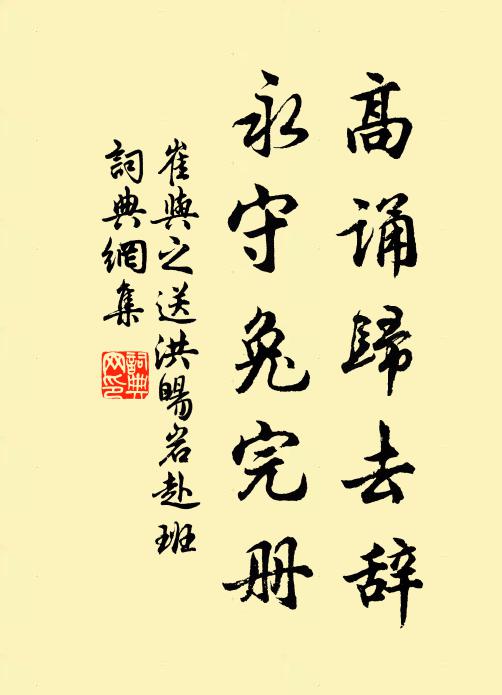 高诵歸去辞
永守兔完册
崔與之送洪暘岩赴班
詞典網集
詞典網印